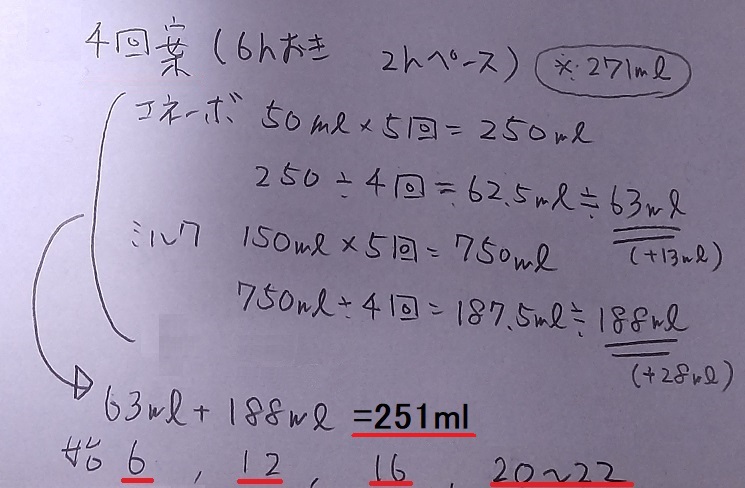 4回案(6hおき 2hペース) ※271ml
エネーボ 50ml×5回=250ml
250÷4回=62.5ml≒63ml
(+13ml)
ミルク 150ml×5回=750ml
750ml÷4回=187.5ml≒188ml
(+28ml)
63ml+188ml=251ml
6, 12, 16, 20~22